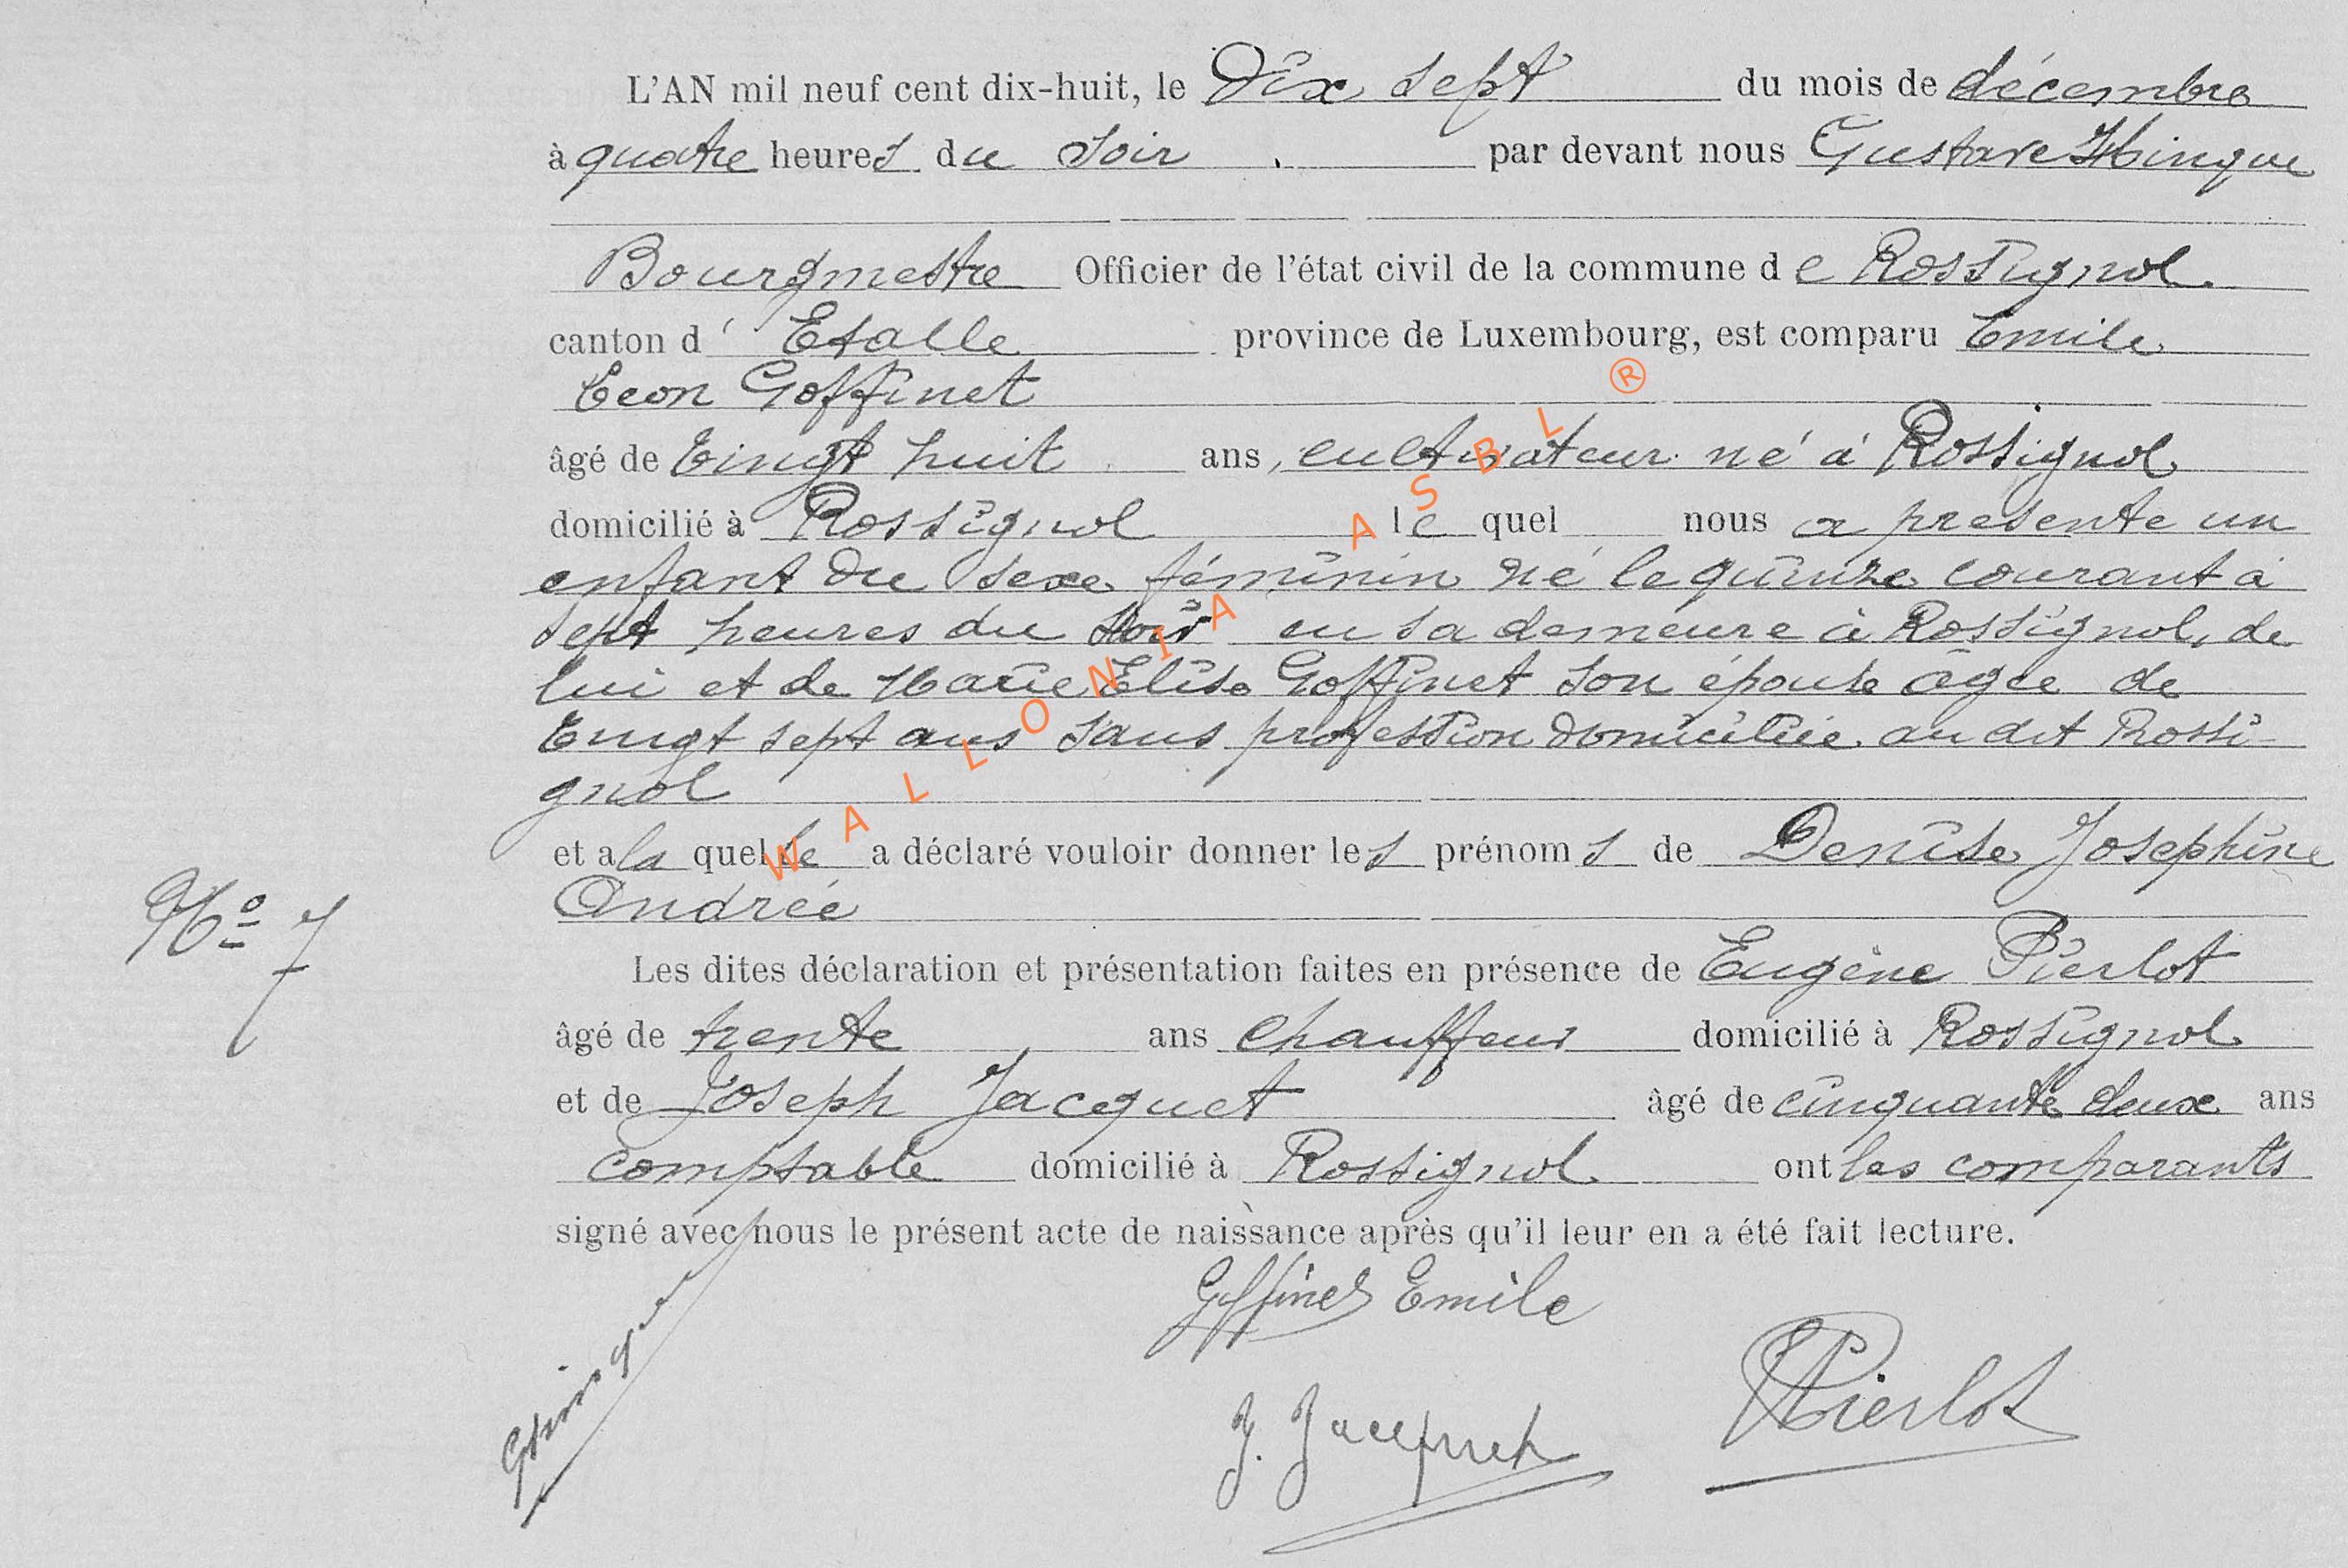 L'AN mil neuf cent dix-huit, le Dix sept du mois de décembre
à quatre heures du soir par devant nous Gustave Hinque
Bourgmestre Officier de l'état civil de la commune de Rossignol
canton d'Etalle province de Luxembourg, est comparu Emile
Léon Goffinet
âgé de Vingt huit ans, cultivateur né à Rossignol
domicilié à Rossignol lequel nous a présenté un
enfant du sexe féminin né le quinze courant à
sept heures du soir en sa demeure à Rossignol, de
lui et de Marie Elise Goffinet son épouse âgée de
Vingt sept ans sans profession domiciliée au dit Rossi-
gnol
et a la quelle a déclaré vouloir donner les prénoms de Denise Joséphine
Andrée
No 7
Les dites déclaration et présentation faites en présence de Eugène Pierlot
âgé de trente ans chauffeur domicilié à Rossignol
et de Joseph Jacquet âgé de cinquante deux ans
comptable domicilié à Rossignol ont les comparants
signé avec nous le présent acte de naissance après qu'il leur en a été fait lecture.
Goffinet Emile
GHinque
J. Jacquet
EPierlot
WALLONIA ASBL ®